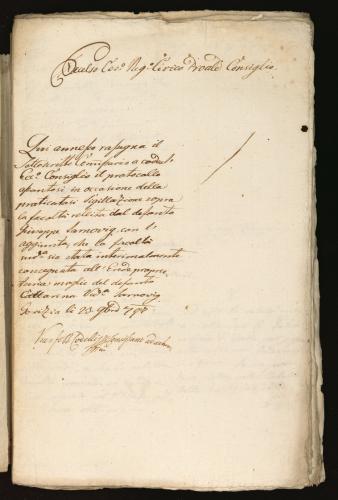 Eccelso Ces.º Reg.º Civico Provle Consiglio
Qui annesso rasegna il
Sottoscritto Comissario a codesto
Ecc.º Consiglio il protocollo
assontosi in occasione della
praticatasi Sigillazione sopra
la facoltà relita dal defonto
Giuseppe Sarnovig con l'
aggiunta, che la facoltà
med.ª sia stata interinalmente
consegnata all' Erede
moglie del defonto
Cattarina Ved.ª Sarnovig
Gorizia li 23 9bre 798